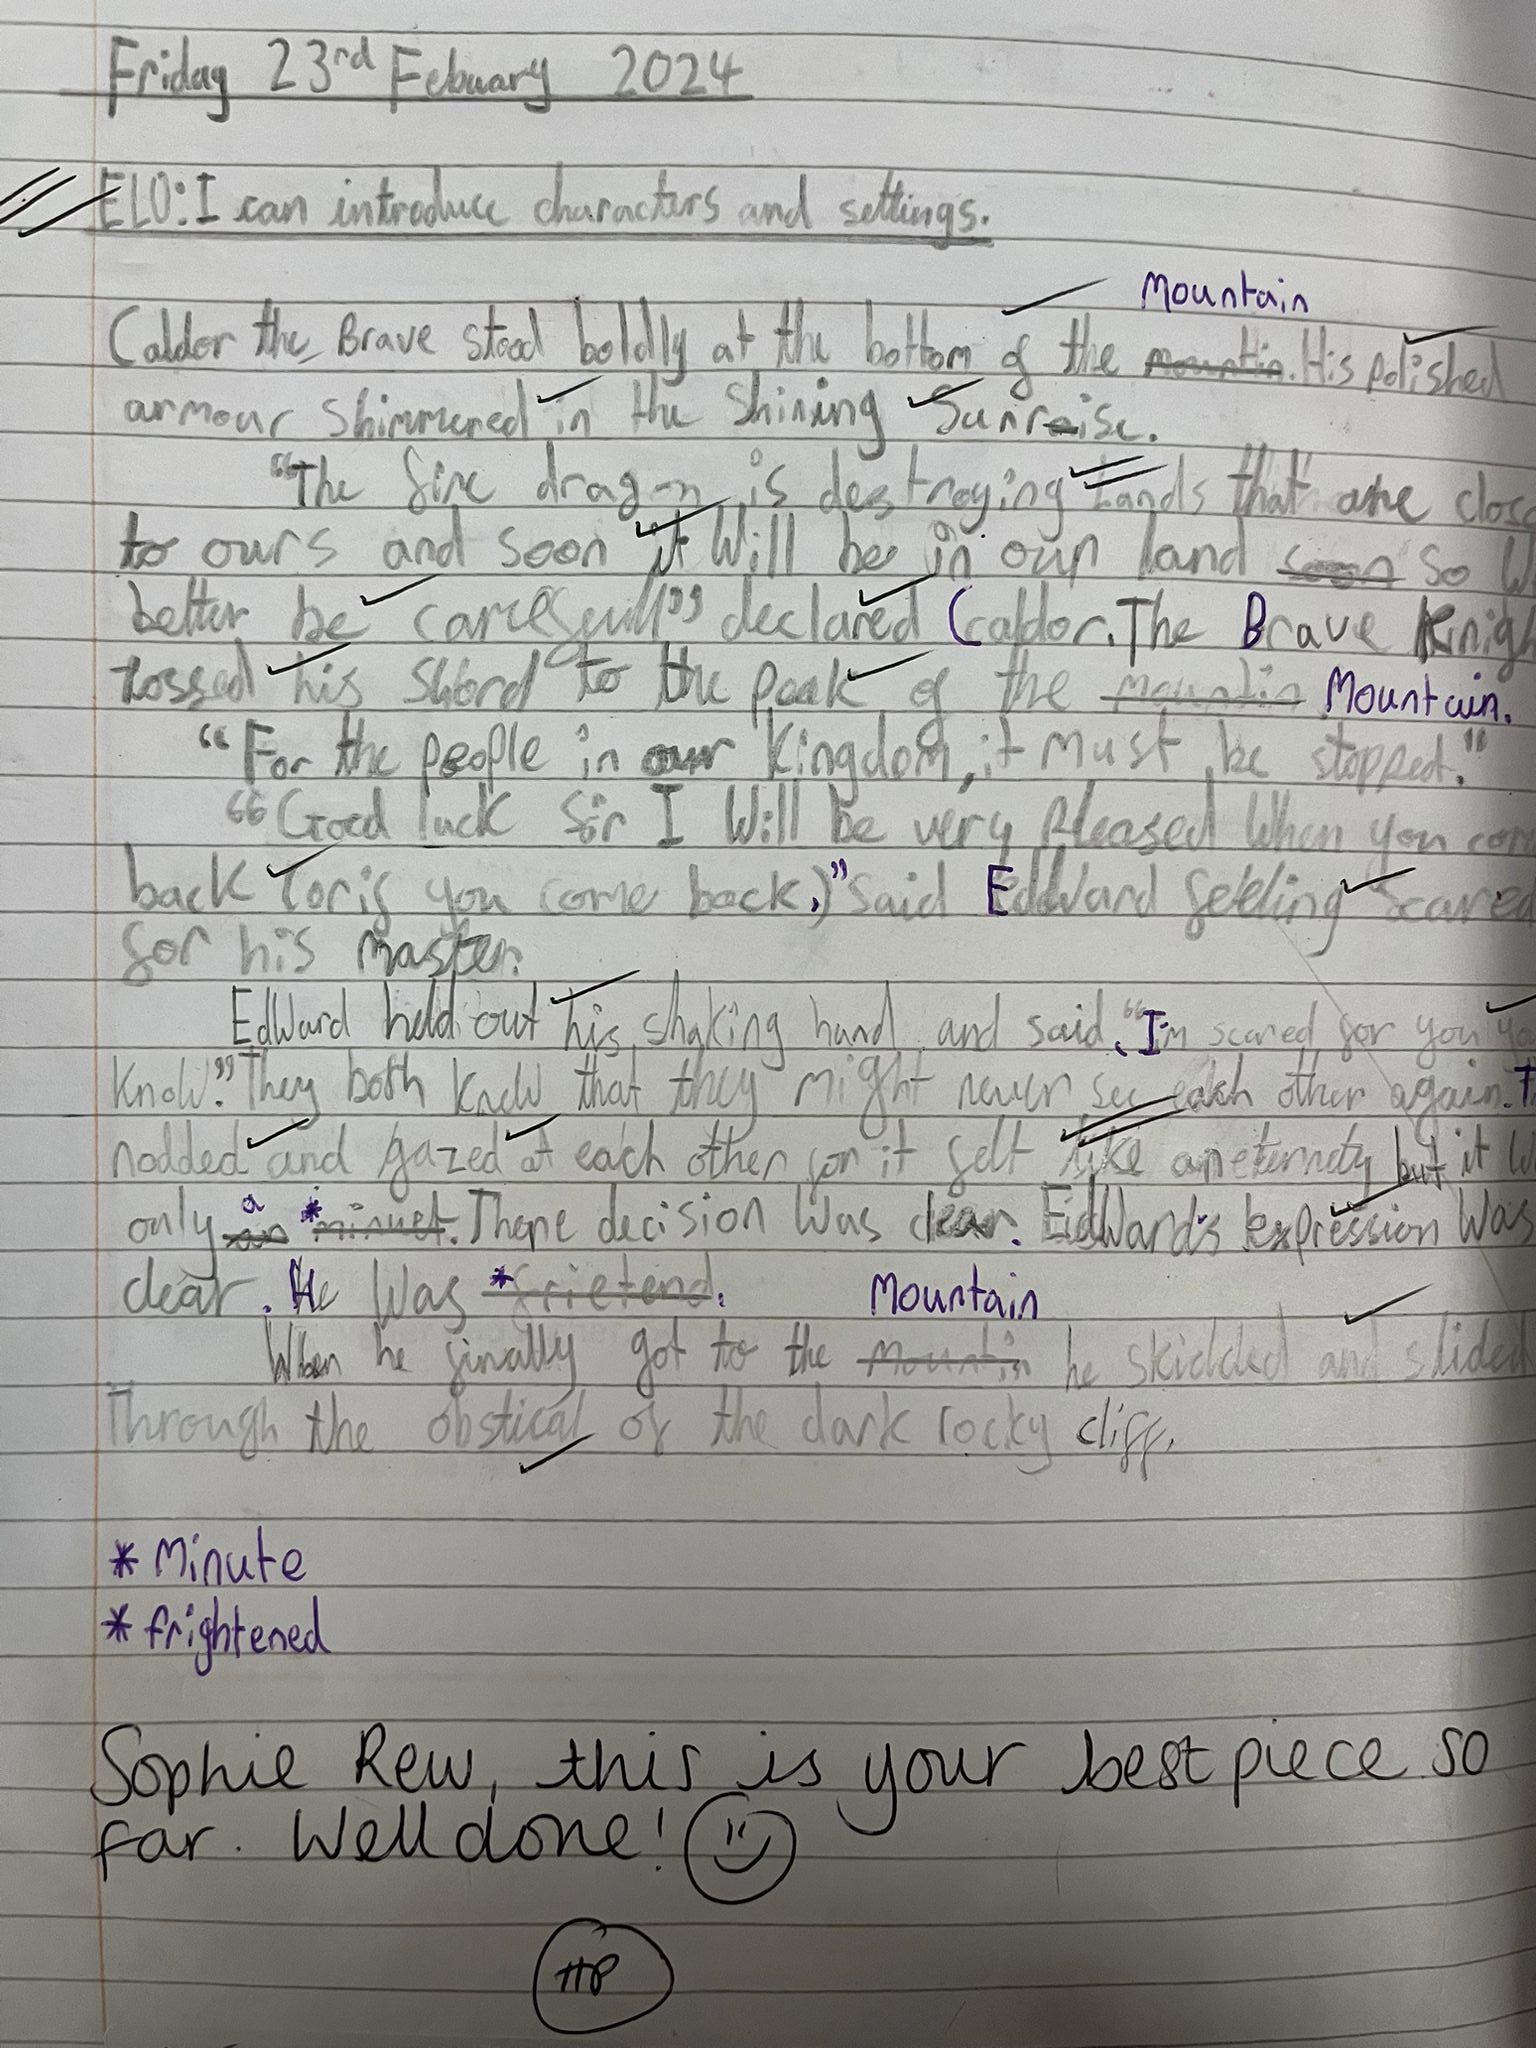 Friday 23rd Febuary 2024
ELO: I can introduce characters and settings.
Mountain
Caldor the Brave stood boldly at the bottom of the mountin. His polished
armour shimmered in the shining Sunraise.
"The fire dragon is destroying lands that are close
to ours and soon it will be in our land soon so
better be carefull" declared Caldor. The Brave
tossed his sword to the peak of the mountin Mountain.
"For the people in our kingdom, it must be stopped."
"Good luck sir I will be very pleased when you
back (or if you come back.)" said Edward feeling scared
for his master.
Edward held out his shaking hand and said, "I'm scared for you
know." They both knew that they might never see each other again.
nodded and gazed at each other for it felt like an eternity but it
only an a *minuet. There decision was clear. Edward's expression was
clear. He was *frietend.
Mountain
When he finally got to the mountin he skidded and slided
Through the obstical of the dark rocky cliff.
*Minute
*frightened
Sophie Rew, this is your best piece so
far. Well done!
HP